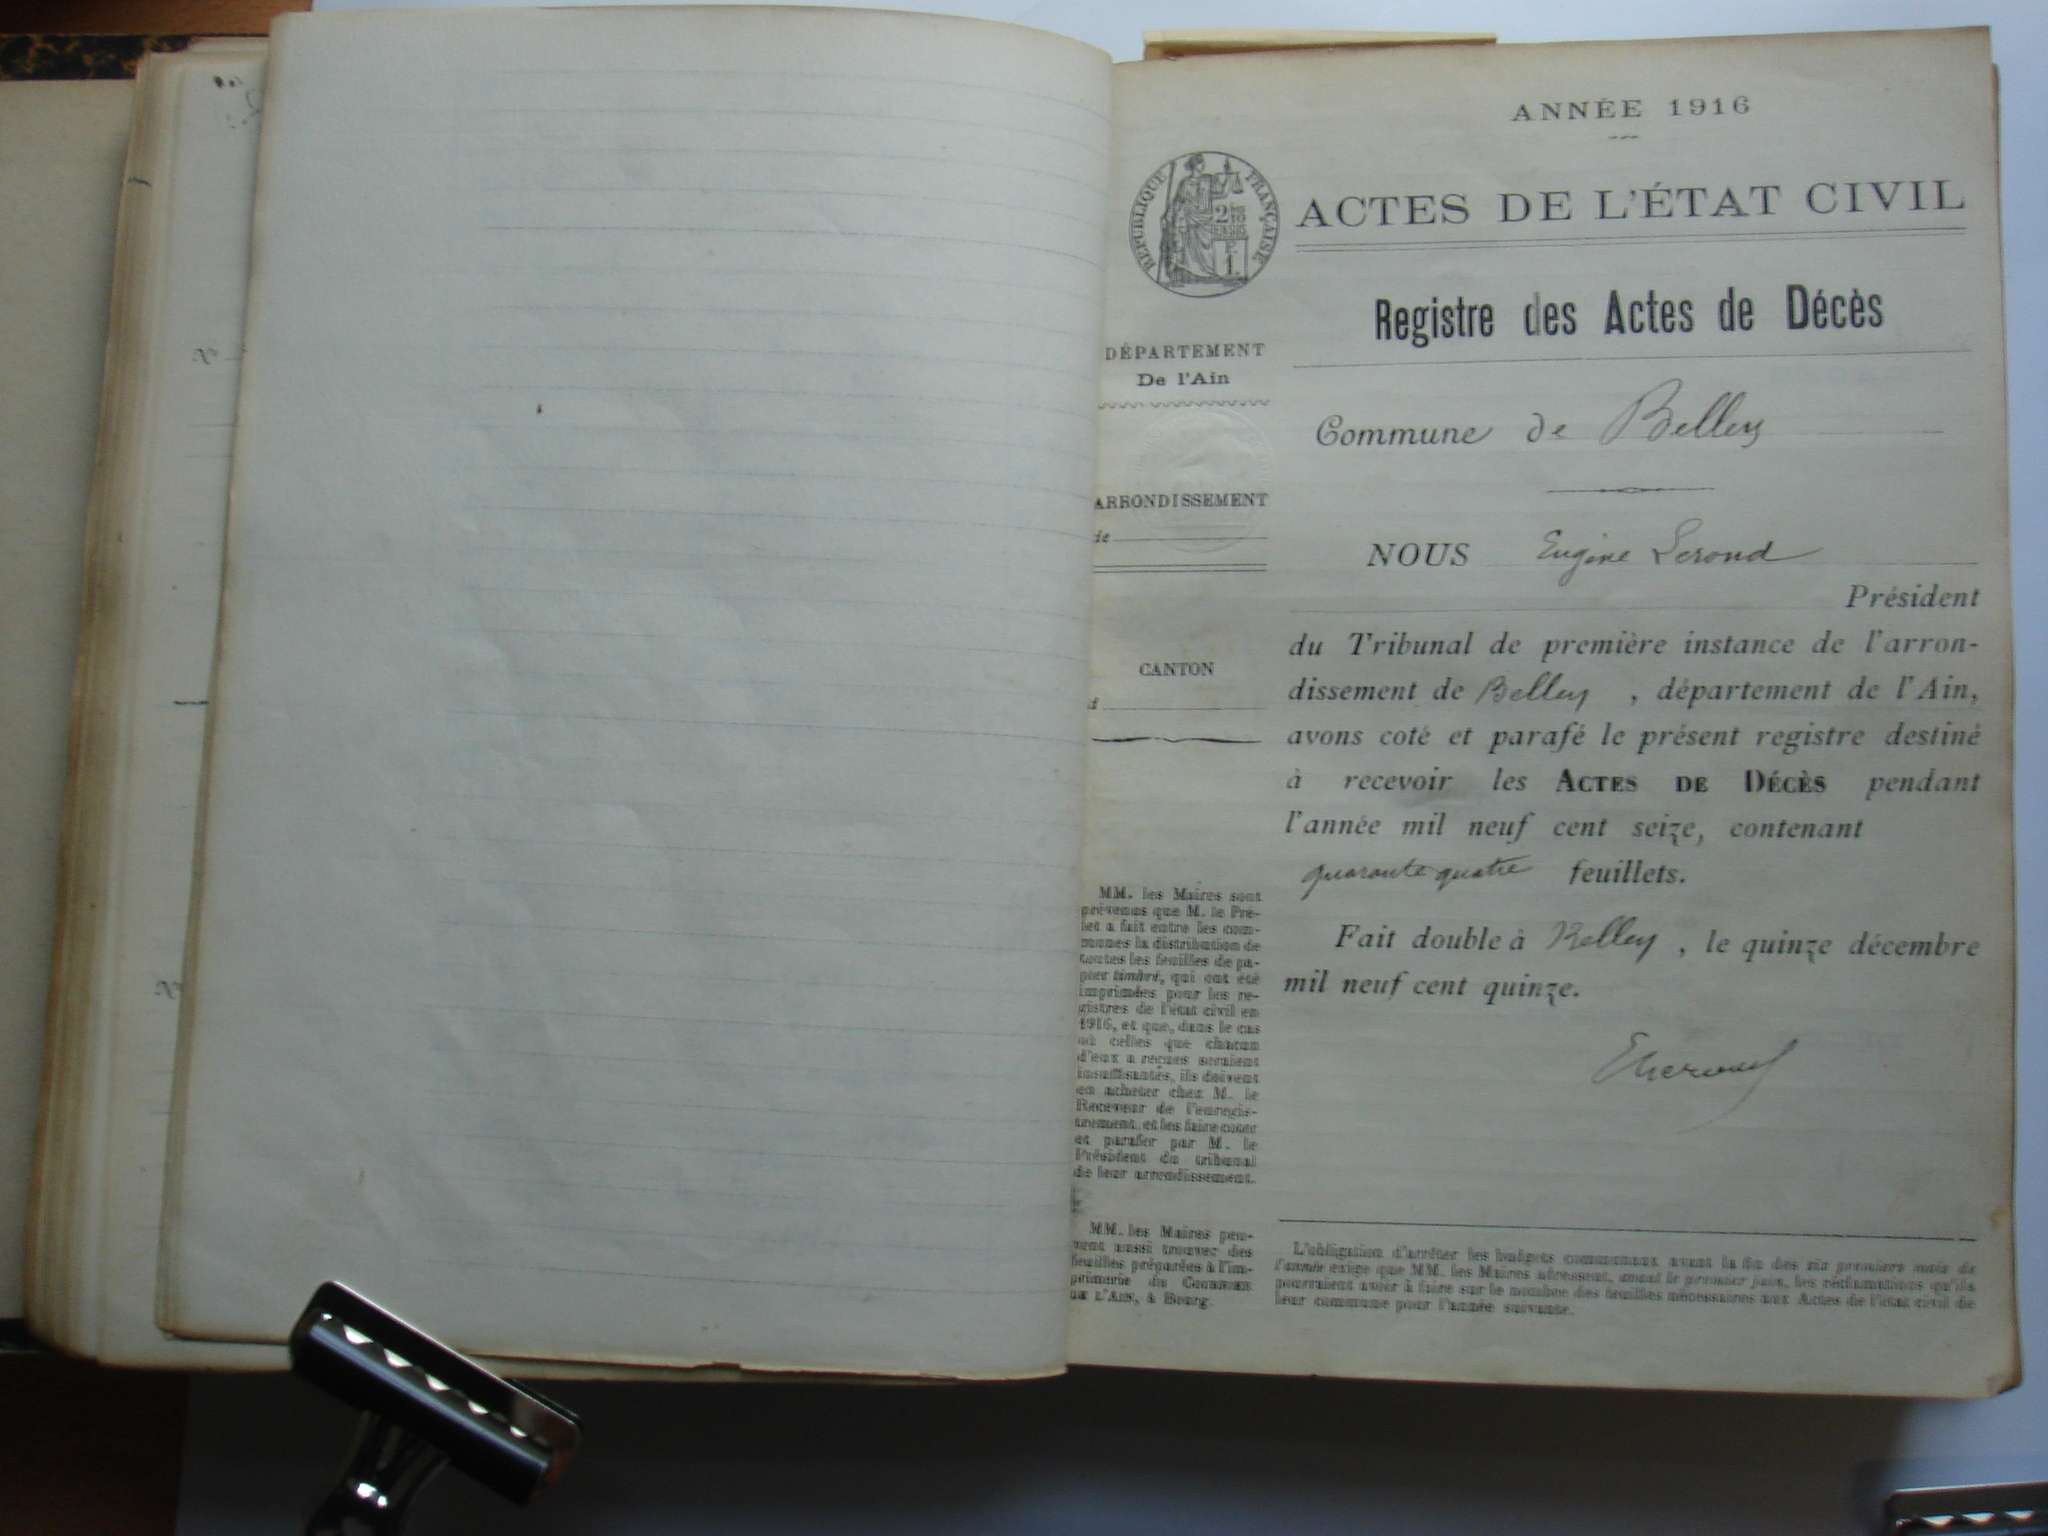 ANNÉE 1916
RÉPUBLIQUE FRANÇAISE
ACTES DE L'ÉTAT CIVIL
Registre des Actes de Décès
DÉPARTEMENT
De l'Ain
Commune de Belley
ARRONDISSEMENT
de
NOUS Eugène Lerond
Président
du Tribunal de première instance de l'arron-
dissement de Belley, département de l'Ain,
avons coté et parafé le présent registre destiné
à recevoir les ACTES DE DÉCÈS pendant
l'année mil neuf cent seize, contenant
quarante quatre feuillets.
Fait double à Belley, le quinze décembre
mil neuf cent quinze.
CANTON
MM. les Maires sont
prévenus que M. le Pré-
fet a fait entre les com-
munes la distribution de
toutes les feuilles de pa-
pier timbré, qui ont été
imprimées pour les re-
gistres de l'état civil en
1916, et que, dans le cas
où celles que chacun
d'eux a reçues seraient
insuffisantes, ils doivent
en acheter chez M. le
Receveur de l'enregis-
trement, et les faire coter
et parafer par M. le
Président du tribunal
de leur arrondissement.
MM. les Maires peu-
vent aussi trouver des
feuilles préparées à l'im-
primerie du COURRIER
DE L'AIN, à Bourg.
L'obligation d'arrêter les budgets communaux avant la fin des six premiers mois de
l'année exige que MM. les Maires adressent, avant le premier juin, les réclamations qu'ils
pourraient avoir à faire sur le nombre des feuilles nécessaires aux Actes de l'état civil de
leur commune pour l'année suivante.